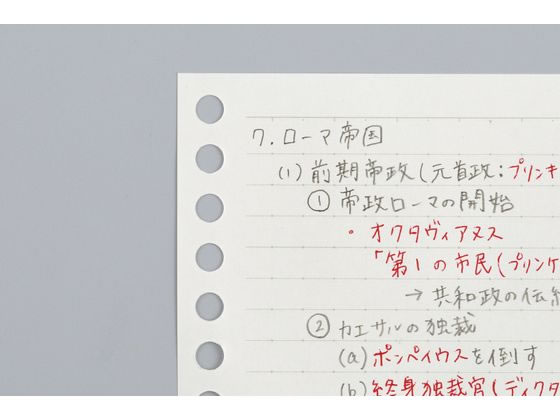 7. ローマ帝国
(1) 前期帝政(元首政:プリンキ
① 帝政ローマの開始
・オクタヴィアヌス
「第1の市民(プリンケ
→ 共和政の伝統
② カエサルの独裁
(a) ポンペイウスを倒す
(b) 終身独裁官(ディクタ